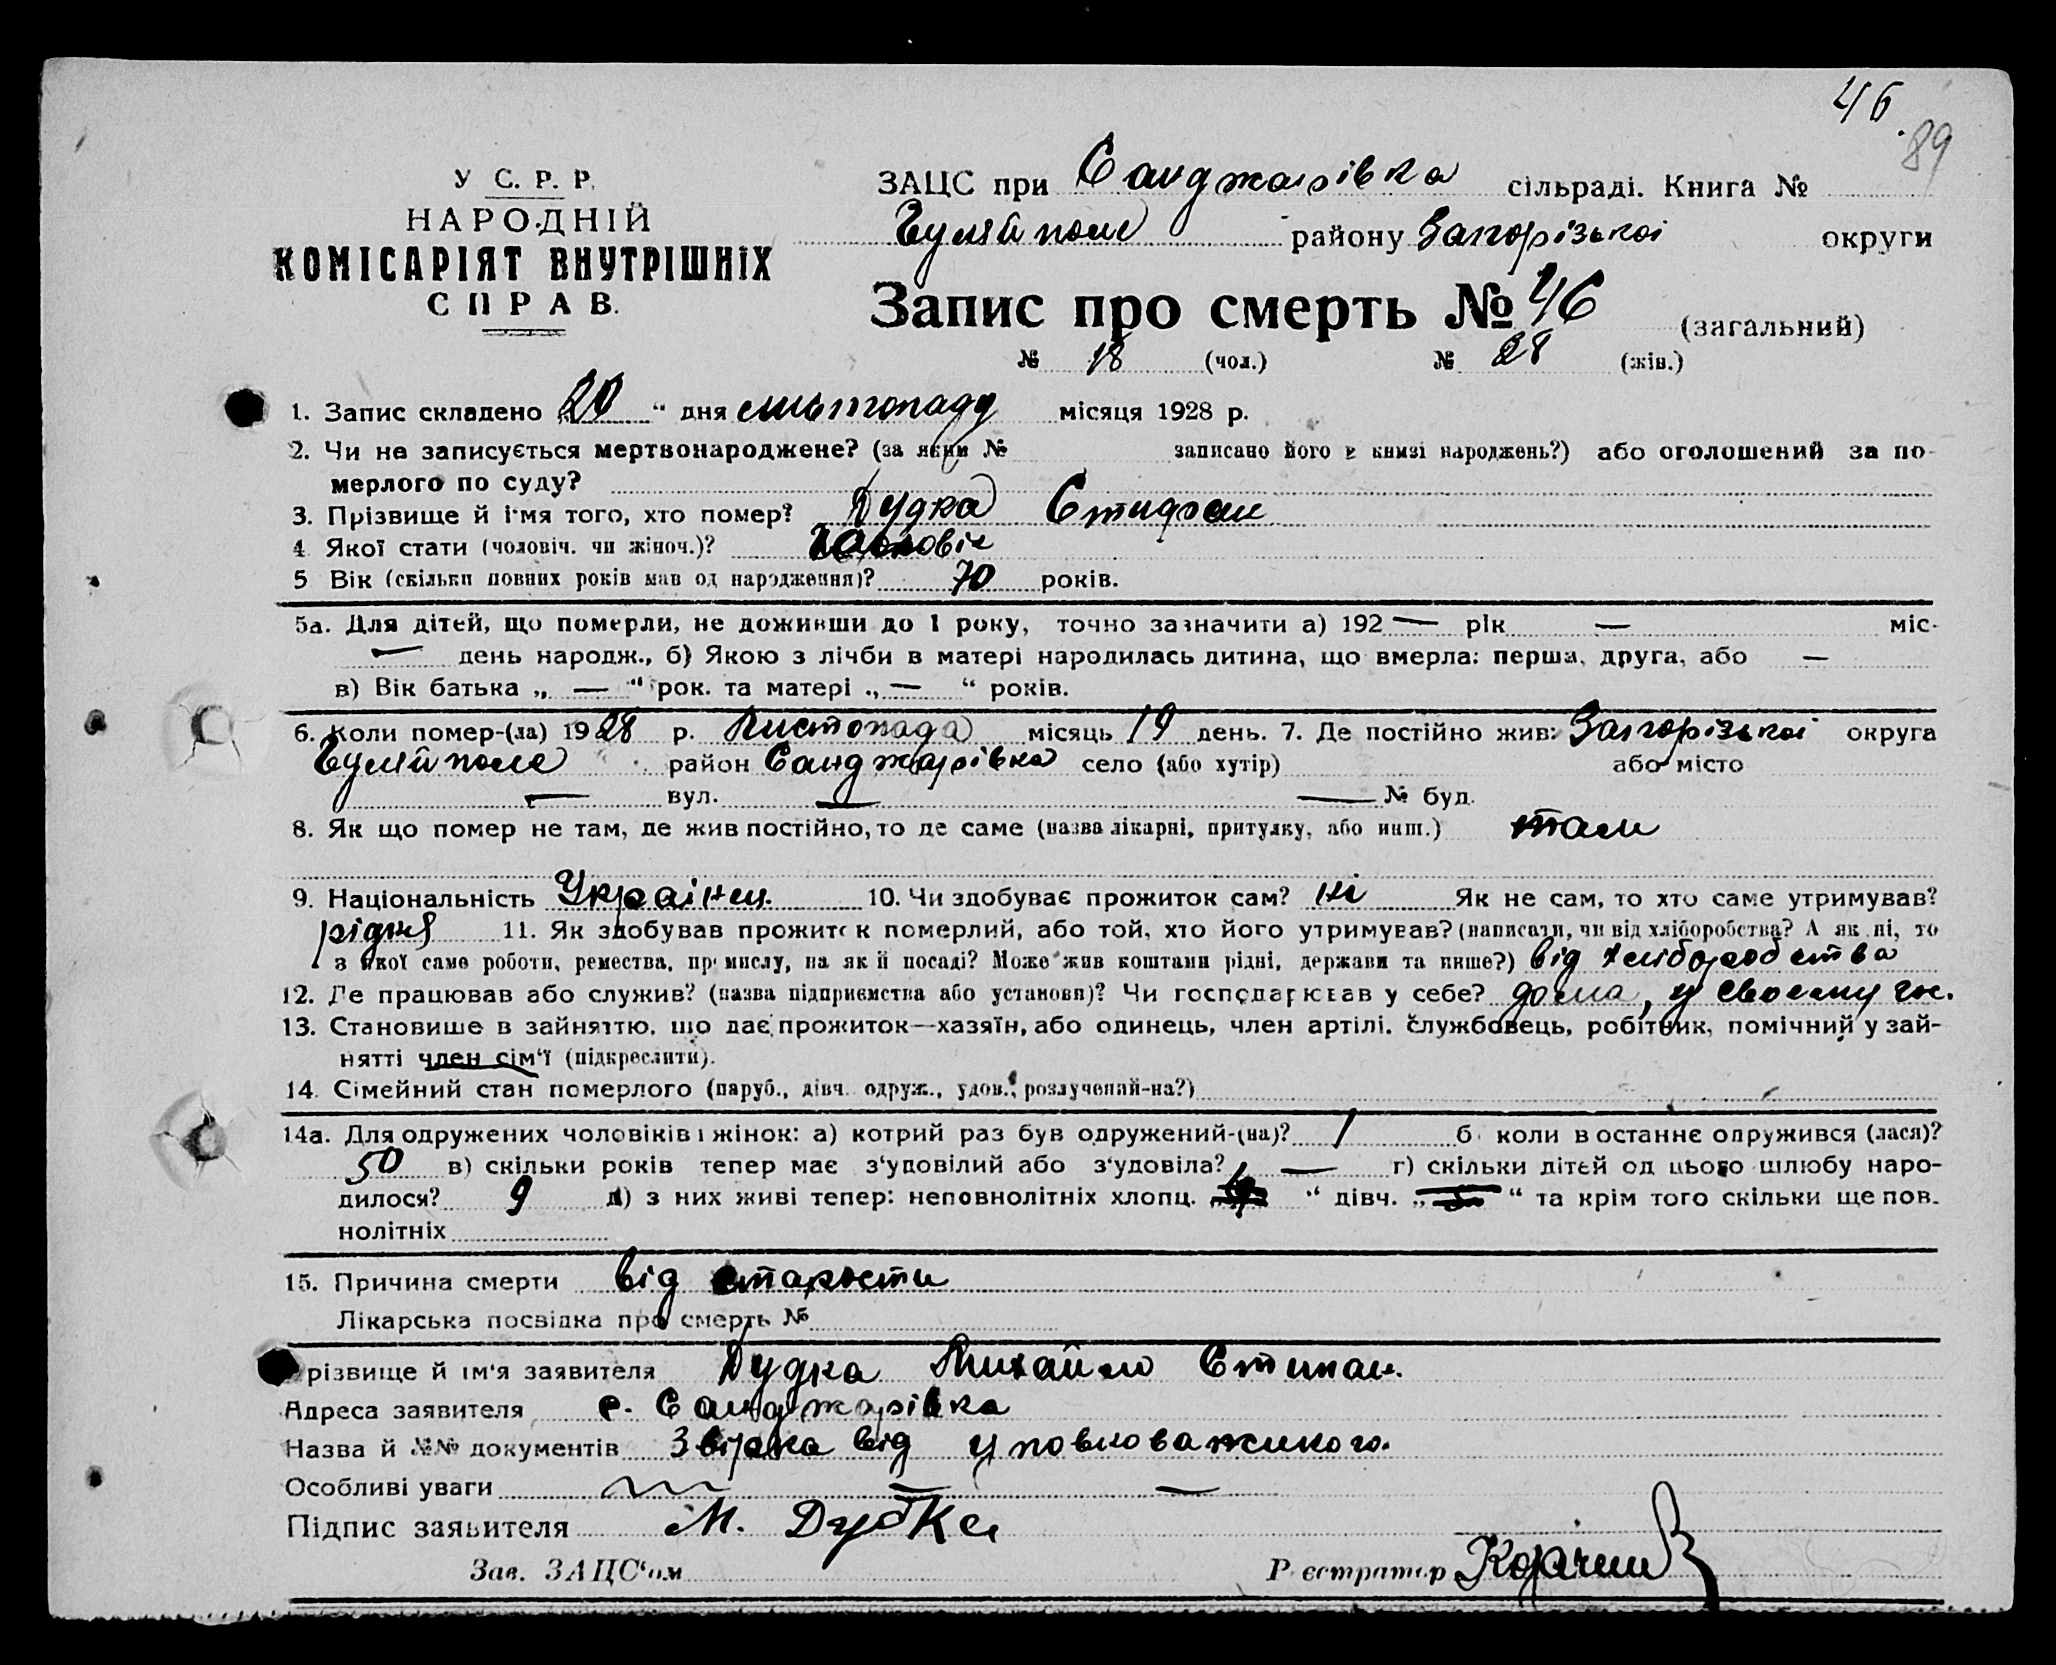 46.
89
У С. Р. Р.
НАРОДНІЙ
КОМІСАРІЯТ ВНУТРІШНІХ
СПРАВ.
ЗАЦС при Санджарівка сільраді. Книга №
Гуляйполе району Запорізькоі округи
Запис про смерть № 46 (загальний)
№ 18 (чол.) № 28 (жін.)
1. Запис складено „20“ дня листопаду місяця 1928 р.
2. Чи не записується мертвонароджене? (за яким № записано його в книзі народжень?) або оголошений за по-
мерлого по суду?
3. Прізвище й ім'я того, хто помер? Дудка Стифан
4 Якої стати (чоловіч. чи жіноч.)? чоловік
5 Вік (скільки повних років мав од народження)? 70 років.
5а. Для дітей, що померли, не доживши до 1 року, точно зазначити а) 192 — рік — міс-
— день народж., б) Якою з лічби в матері народилась дитина, що вмерла: перша, друга, або —
в) Вік батька „ — “ рок. та матері „ — “ років.
6. Коли помер-(ла) 1928 р. Листопада місяць 19 день. 7. Де постійно жив: Запорізькоі округа
Гуляйполе район Санджарівка село (або хутір) або місто
— вул. — — № буд.
8. Як що помер не там, де жив постійно, то де саме (назва лікарні, притулку, або инш.) там
9. Національність Украінец. 10. Чи здобуває прожиток сам? ні Як не сам, то хто саме утримував?
рідня 11. Як здобував прожиток померлий, або той, хто його утримував? (написати, чи від хліборобства? А як ні, то
з якої саме роботи, ремества, промислу, на якій посаді? Може жив коштами рідні, держави та инше?) від хліборобства
12. Де працював або служив? (назва підприємства або установи)? Чи господарював у себе? дома, у своему гос.
13. Становище в зайняттю, що дає прожиток—хазяїн, або одинець, член артілі, службовець, робітник, помічний у зай-
нятті член сім'ї (підкреслити).
14. Сімейний стан померлого (паруб., дівч. одруж., удов., розлучений-на?)
14а. Для одружених чоловіків і жінок: а) котрий раз був одружений-(на)? 1 б коли востаннє одружився (лася)?
50 в) скільки років тепер має з'удовілий або з'удовіла? — г) скільки дітей од цього шлюбу наро-
дилося? 9 д) з них живі тепер: неповнолітніх хлопц. “ дівч. „ “ та крім того скільки ще пов-
нолітніх
15. Причина смерти від старости
Лікарська посвідка про смерть №
Прізвище й ім'я заявителя Дудка Михайло Стипан.
Адреса заявителя с. Санджарівка
Назва й №№ документів Звірка від уповноважиного.
Особливі уваги — —
Підпис заявителя М. Дудка
Зав. ЗАЦС'ом Реєстратор